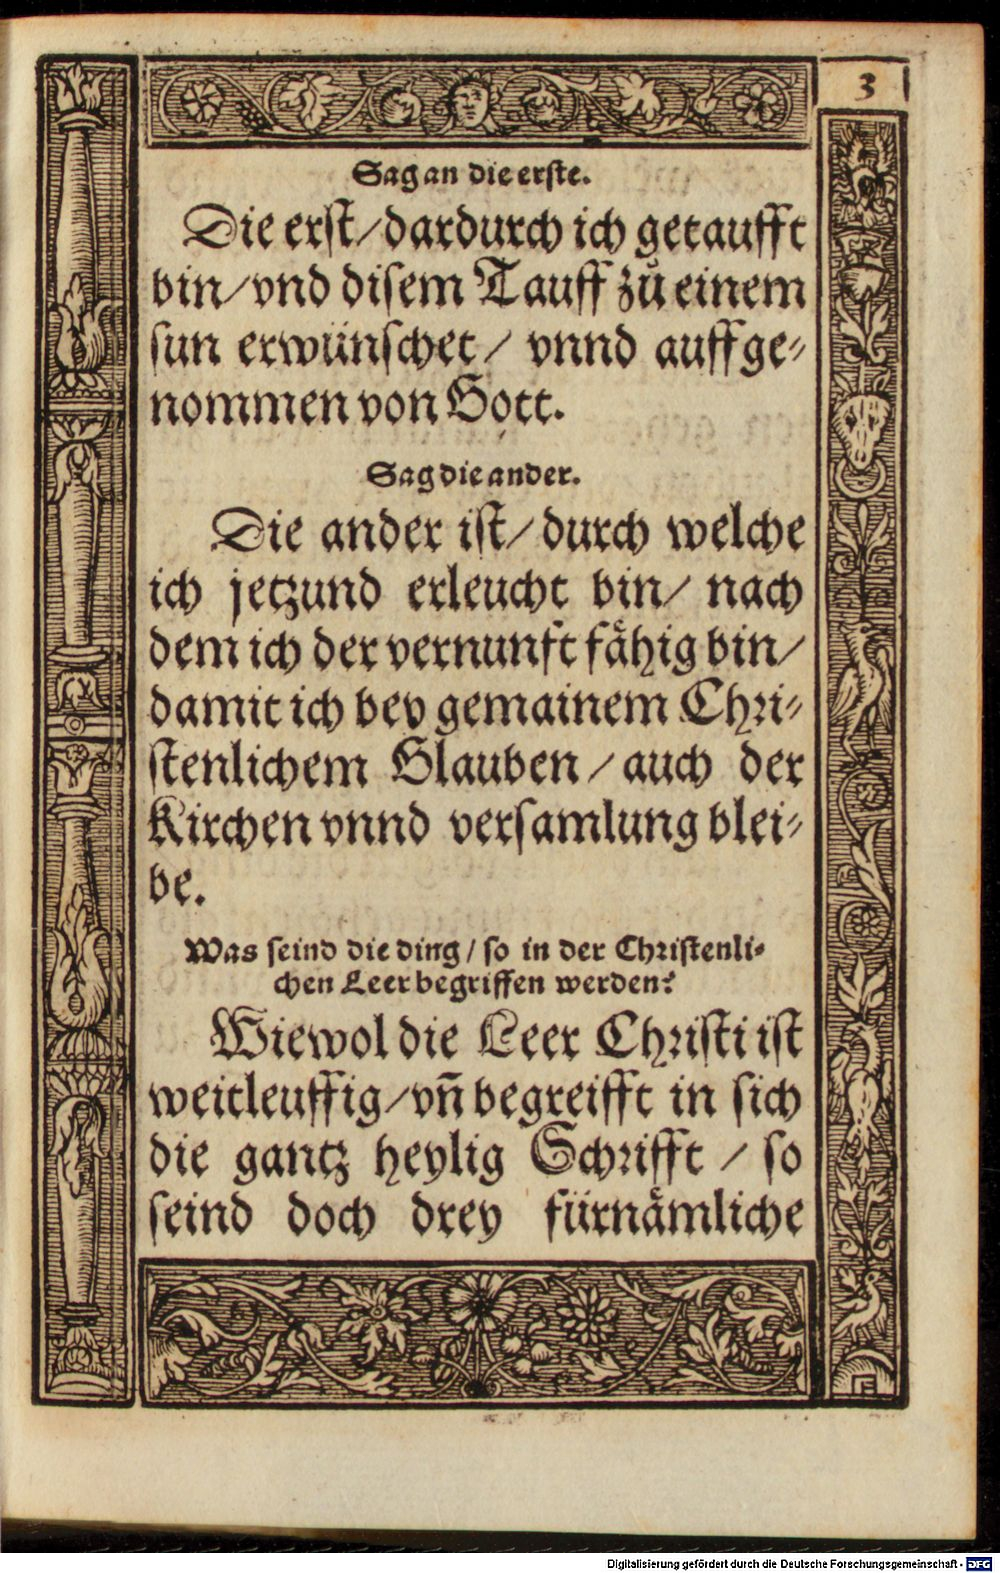 3
Sag an die erste.
Die erst / dardurch ich getaufft
bin / vnd disem Tauff zů einem
sun erwünschet / vnnd auffge-
nommen von Gott.
Sag die ander.
Die ander ist / durch welche
ich jetzund erleucht bin / nach
dem ich der vernunft fähig bin /
damit ich bey gemainem Chri-
stenlichem Glauben / auch der
Kirchen vnnd versamlung blei-
be.
Was seind die ding / so in der Christenli-
chen Leer begriffen werden?
Wiewol die Leer Christi ist
weitleuffig / vn̄ begreifft in sich
die gantz heylig Schrifft / so
seind doch drey fürnämliche
Digitalisierung gefördert durch die Deutsche Forschungsgemeinschaft - DFG